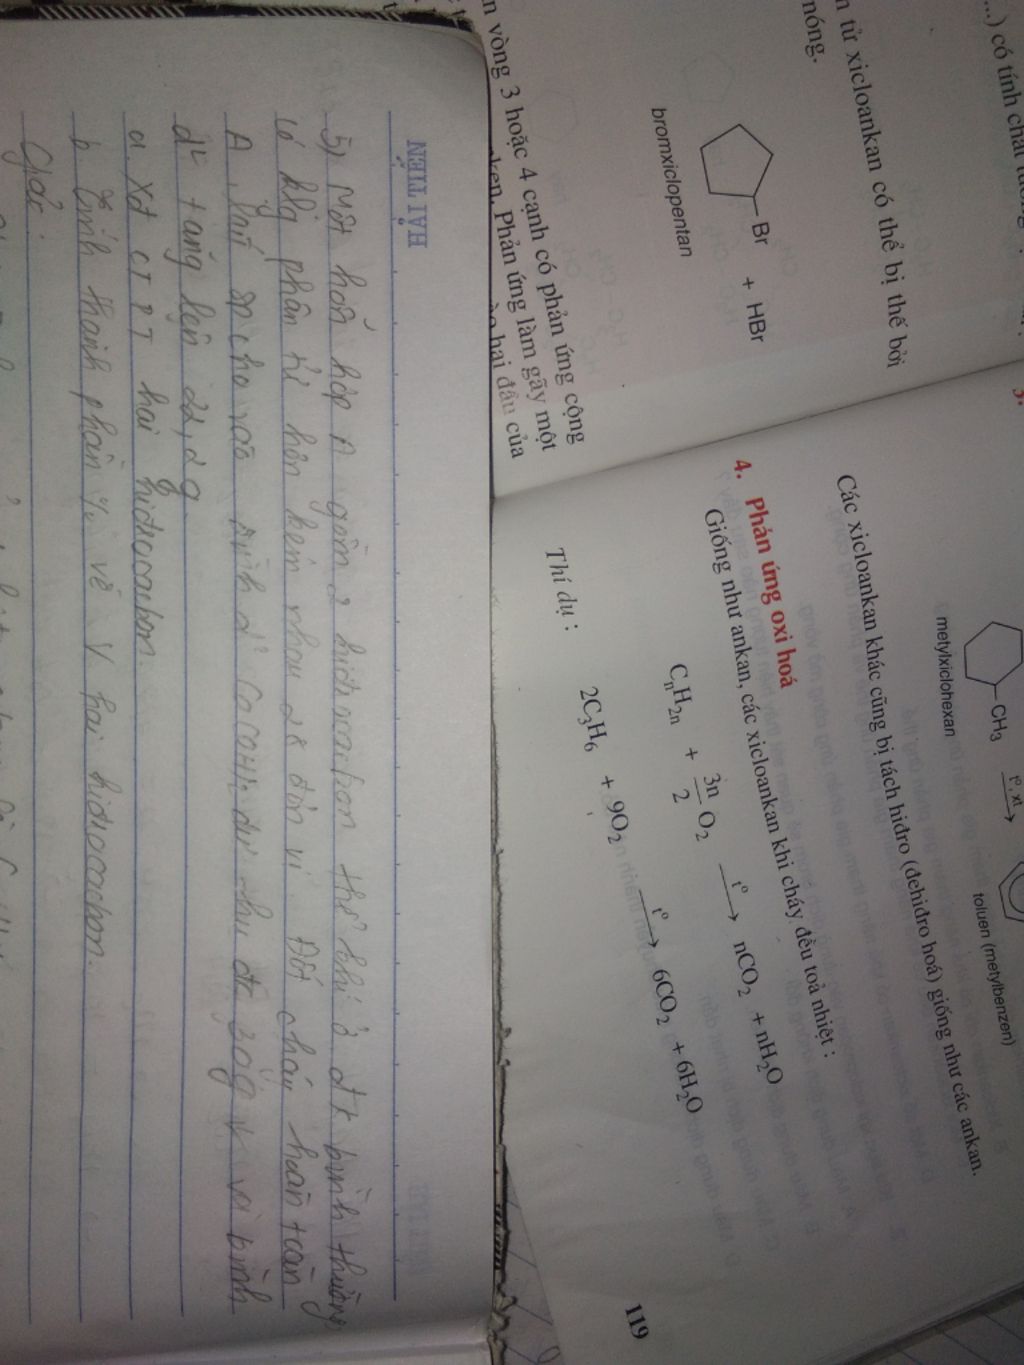 ...) có tính chất tương
n tử xicloankan có thể bị thế bởi
nóng.
Br
+ HBr
bromxiclopentan
n vòng 3 hoặc 4 cạnh có phản ứng cộng
ken. Phản ứng làm gãy một
hai đầu của
3.
CH3
t°, xt
metylxiclohexan
toluen (metylbenzen)
Các xicloankan khác cũng bị tách hiđro (đehiđro hoá) giống như các ankan.
4. Phản ứng oxi hoá
Giống như ankan, các xicloankan khi cháy đều toả nhiệt :
CnH2n + 3n/2 O2 t° → nCO2 + nH2O
Thí dụ : 2C3H6 + 9O2 t° → 6CO2 + 6H2O
119
HẢI TIẾN
5, Một hỗn hợp A gồm 2 hiđrocacbon thể khí ở đk bình thường
có klg phân tử hơn kém nhau 28 đơn vị. Đốt cháy hoàn toàn
A thu sp cho vào bình d² Ca(OH)2 dư thu đc 30g ↓ và bình
d² tăng lên 22,2g
a. Xđ CTPT hai hiđrocacbon.
b Tính thành phần % về V hai hiđrocacbon.
Giải: